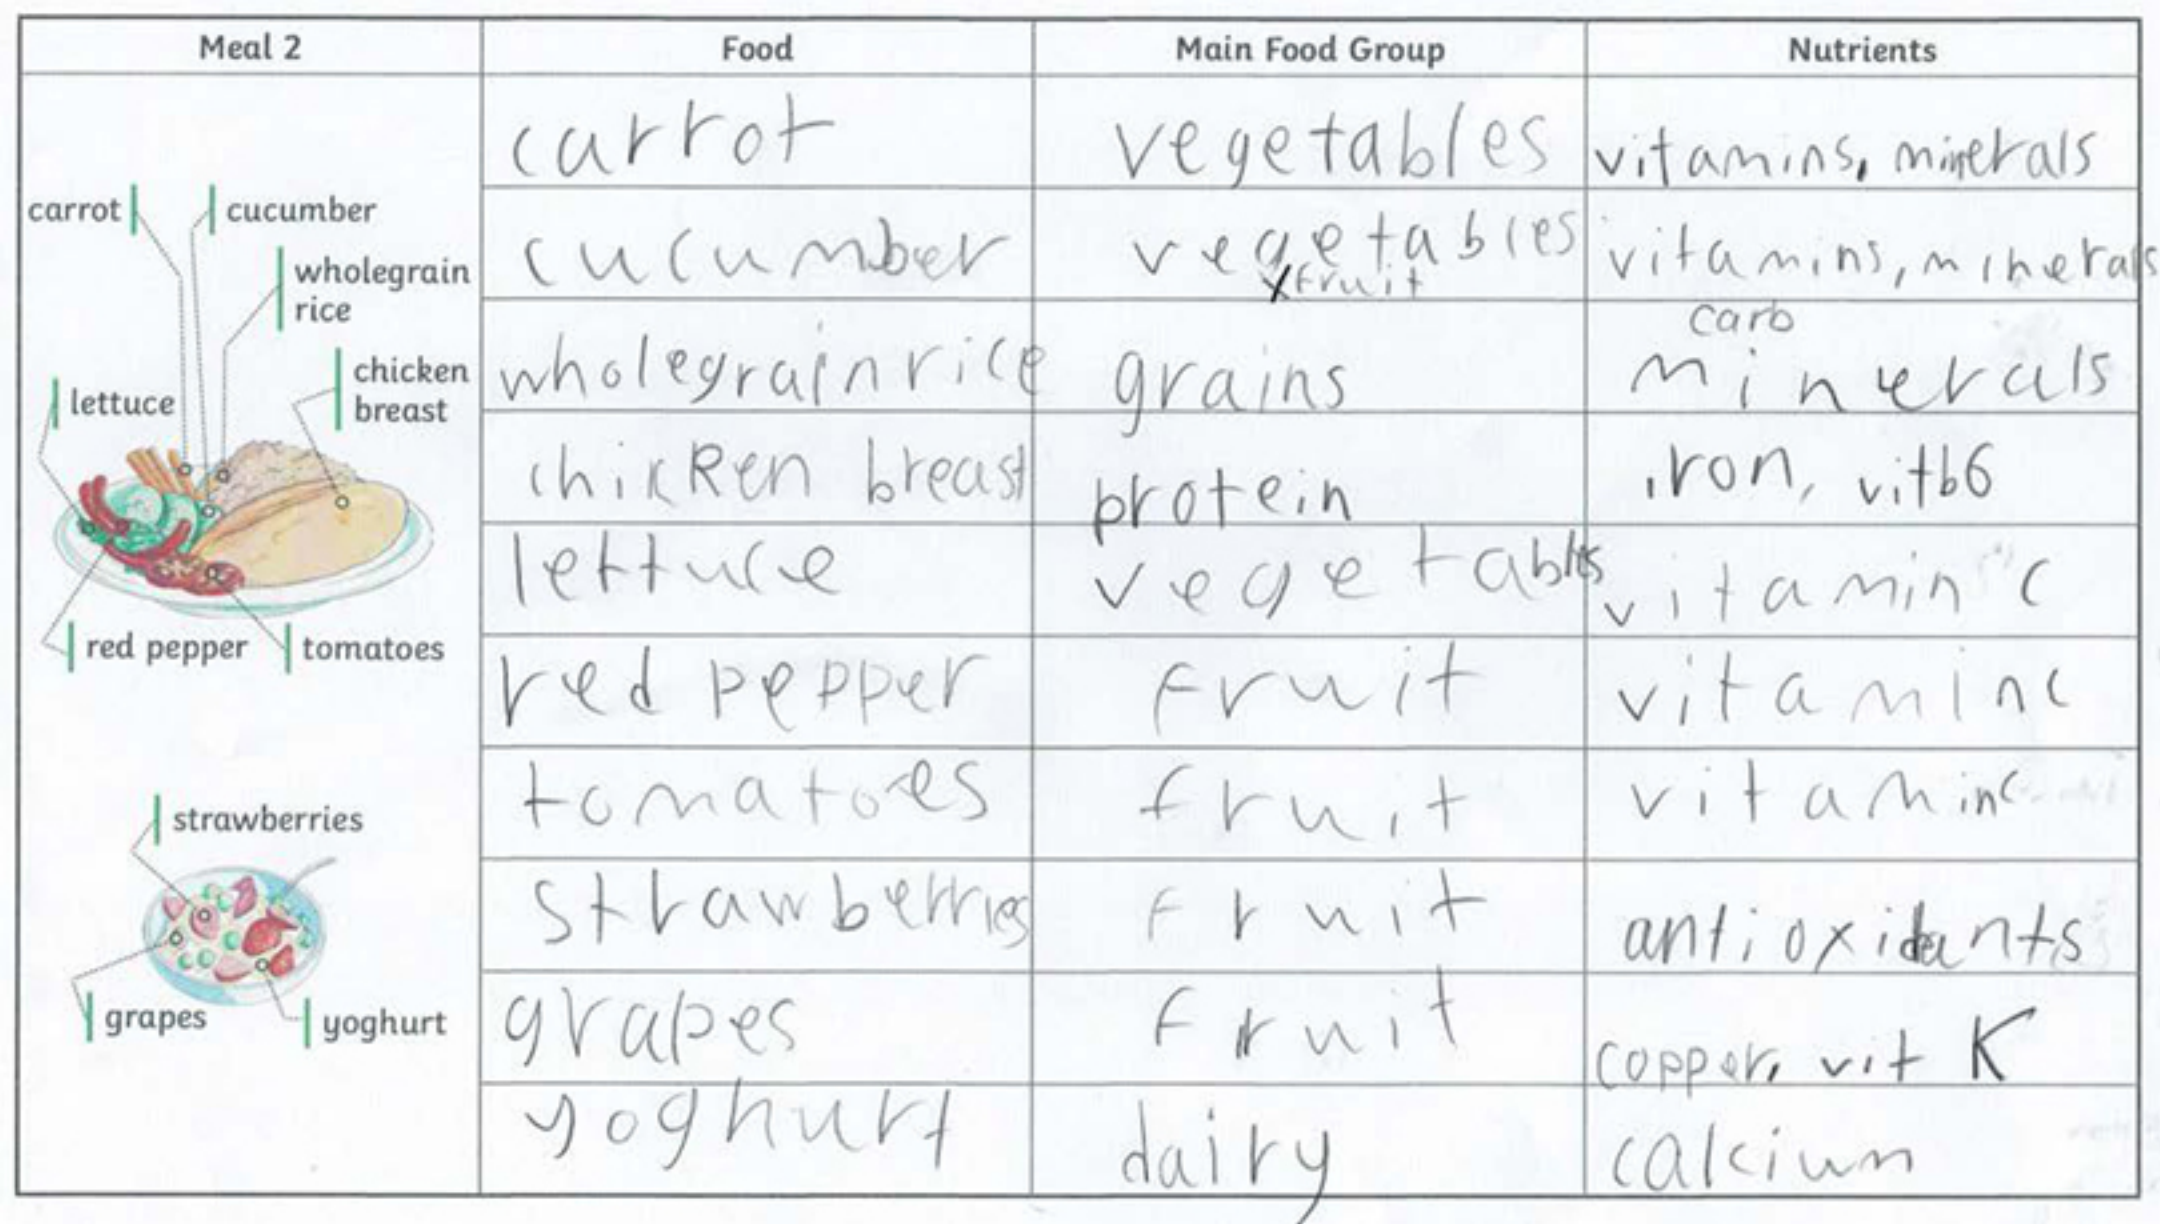 Meal 2
Food
Main Food Group
Nutrients
carrot
cucumber
wholegrain
rice
chicken
breast
lettuce
red pepper
tomatoes
strawberries
grapes
yoghurt
carrot
vegetables
vitamins, minerals
cucumber
vegetables
fruit
vitamins, minerals
wholegrain rice
grains
carb
minerals
chicken breast
protein
iron, vitb6
lettuce
vegetables
vitamin C
red pepper
fruit
vitamin c
tomatoes
fruit
vitamin c
strawberries
fruit
antioxidants
grapes
fruit
copper, vit K
yoghurt
dairy
calcium